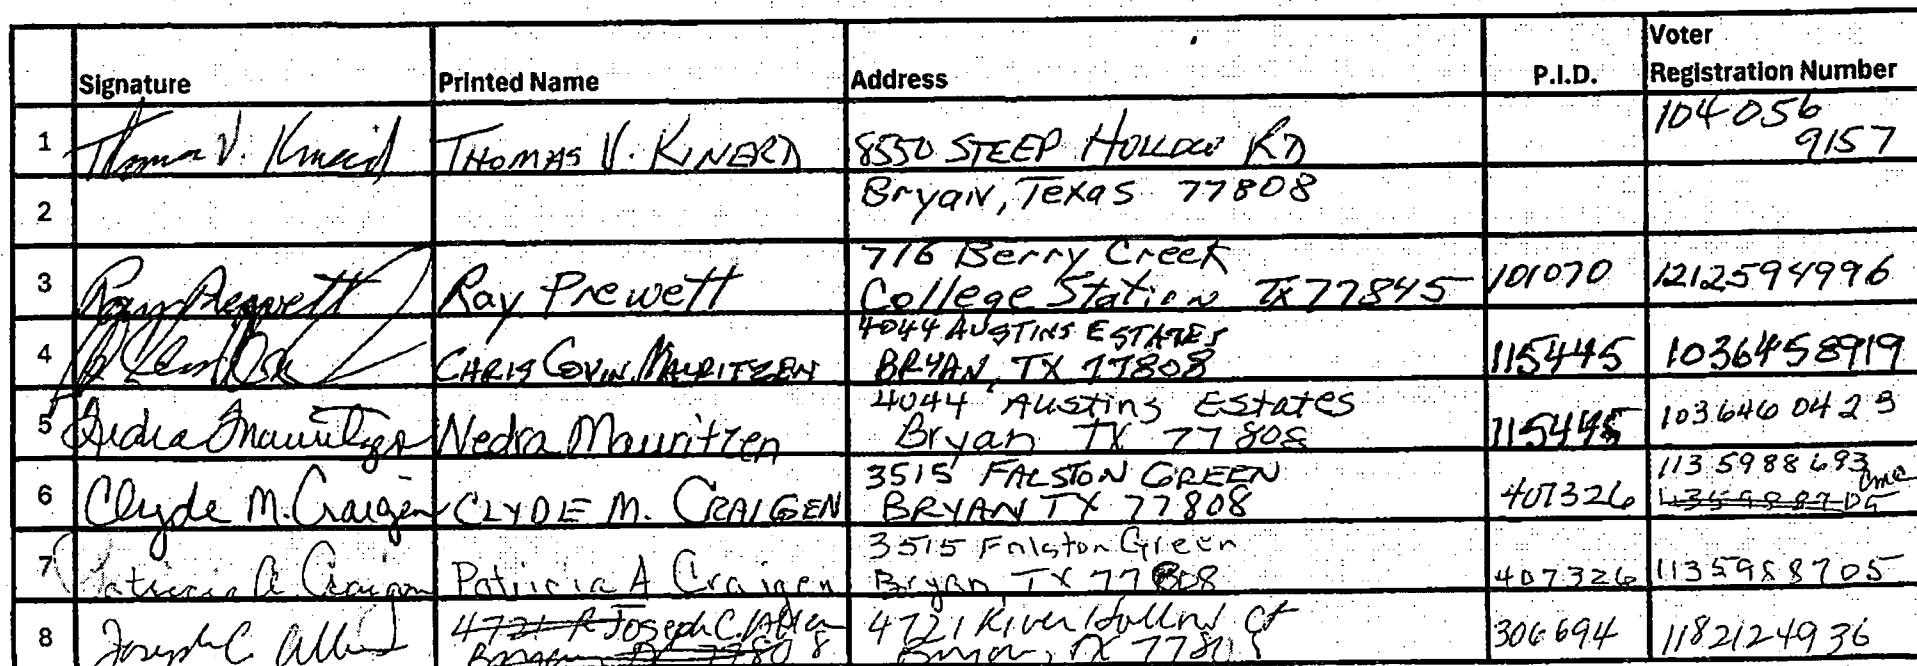 Signature Printed Name Address P.I.D. Voter Registration Number
1 Thomas V. Kinerd THOMAS V. KINERD 8550 STEEP HOLLOW RD 104056 9157
2 Bryan, Texas 77808
3 Ray Prewett Ray Prewett 716 Berry Creek
College Station TX 77845 101070 1212594996
4 CHRIS COVIN MAURITZEN 4044 AUSTINS ESTATES
BRYAN, TX 77808 115445 1036458919
5 Nedra Mauritzen Nedra Mauritzen 4044 Austins Estates
Bryan TX 77808 115445 1036460423
6 Clyde M. Craigen CLYDE M. CRAIGEN 3515 FALSTON GREEN
BRYAN TX 77808 407326 1135988693 cmc
7 Patricia A. Craigen Patricia A Craigen 3515 Falston Green
Bryan, TX 77808 407326 1135988705
8 Joseph C. Allen 4721 R Joseph C. Allen 4721 River Hollow Ct
Bryan, TX 77808 306694 1182124936